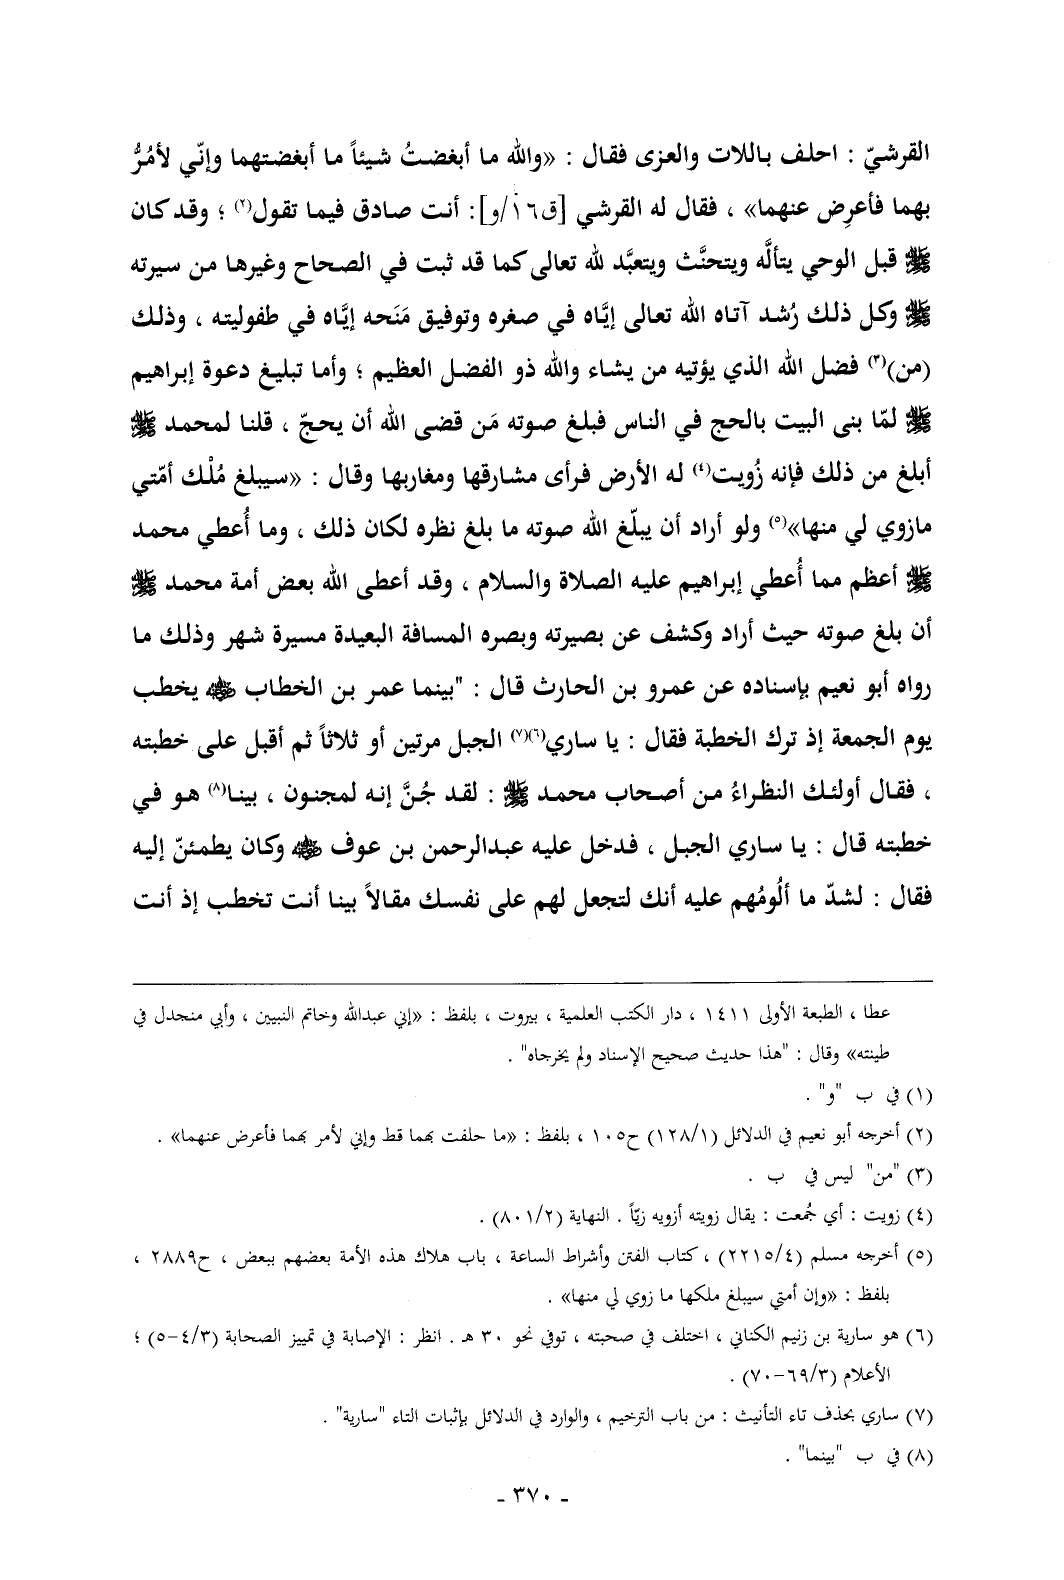 القرشيّ : احلف باللات والعزى فقال : «والله ما أبغضتُ شيئاً ما أبغضتهما وإنّي لأمُرُّ
بهما فأعرِض عنهما» ، فقال له القرشي [ق١٦/و]: أنت صادق فيما تقول(٢) ؛ وقد كان
ﷺ قبل الوحي يتألَّه ويتحنَّث ويتعبَّد لله تعالى كما قد ثبت في الصحاح وغيرها من سيرته
ﷺ وكل ذلك رُشد آتاه الله تعالى إيَّاه في صغره وتوفيق مَنَحه إيَّاه في طفوليته ، وذلك
(من)(٣) فضل الله الذي يؤتيه من يشاء والله ذو الفضل العظيم ؛ وأما تبليغ دعوة إبراهيم
ﷺ لمّا بنى البيت بالحج في الناس فبلغ صوته مَن قضى الله أن يحجّ ، قلنا لمحمد ﷺ
أبلغ من ذلك فإنه زُويت(٤) له الأرض فرأى مشارقها ومغاربها وقال : «سيبلغ مُلْك أمّتي
مازوي لي منها»(٥) ولو أراد أن يبلّغ الله صوته ما بلغ نظره لكان ذلك ، وما أُعطي محمد
ﷺ أعظم مما أُعطي إبراهيم عليه الصلاة والسلام ، وقد أعطى الله بعض أمة محمد ﷺ
أن بلغ صوته حيث أراد وكشف عن بصيرته وبصره المسافة البعيدة مسيرة شهر وذلك ما
رواه أبو نعيم بإسناده عن عمرو بن الحارث قال : "بينما عمر بن الخطاب ﵁ يخطب
يوم الجمعة إذ ترك الخطبة فقال : يا ساري(٦)(٧) الجبل مرتين أو ثلاثاً ثم أقبل على خطبته
، فقال أولئك النظراءُ من أصحاب محمد ﷺ : لقد جُنَّ إنه لمجنون ، بينا(٨) هو في
خطبته قال : يا ساري الجبل ، فدخل عليه عبدالرحمن بن عوف ﵁ وكان يطمئنّ إليه
فقال : لشدّ ما ألُومُهم عليه أنك لتجعل لهم على نفسك مقالاً بينا أنت تخطب إذ أنت
عطا ، الطبعة الأولى ١٤١١ ، دار الكتب العلمية ، بيروت ، بلفظ : «إني عبدالله وخاتم النبيين ، وأبي منجدل في
طينته» وقال : "هذا حديث صحيح الإسناد ولم يخرجاه" .
(١) في ب "و" .
(٢) أخرجه أبو نعيم في الدلائل (١٢٨/١) ح١٠٥ ، بلفظ : «ما حلفت بهما قط وإني لأمر بهما فأعرض عنهما» .
(٣) "من" ليس في ب .
(٤) زويت : أي جُمعت : يقال زويته أزويه زيّاً . النهاية (٨٠١/٢) .
(٥) أخرجه مسلم (٢٢١٥/٤) ، كتاب الفتن وأشراط الساعة ، باب هلاك هذه الأمة بعضهم ببعض ، ح٢٨٨٩ ،
بلفظ : «وإن أمتي سيبلغ ملكها ما زوي لي منها» .
(٦) هو سارية بن زنيم الكناني ، اختلف في صحبته ، توفي نحو ٣٠ هـ . انظر : الإصابة في تمييز الصحابة (٤/٣-٥) ؛
الأعلام (٦٩/٣-٧٠) .
(٧) ساري بحذف تاء التأنيث : من باب الترخيم ، والوارد في الدلائل بإثبات التاء "سارية" .
(٨) في ب "بينما" .
- ٣٧٠ -